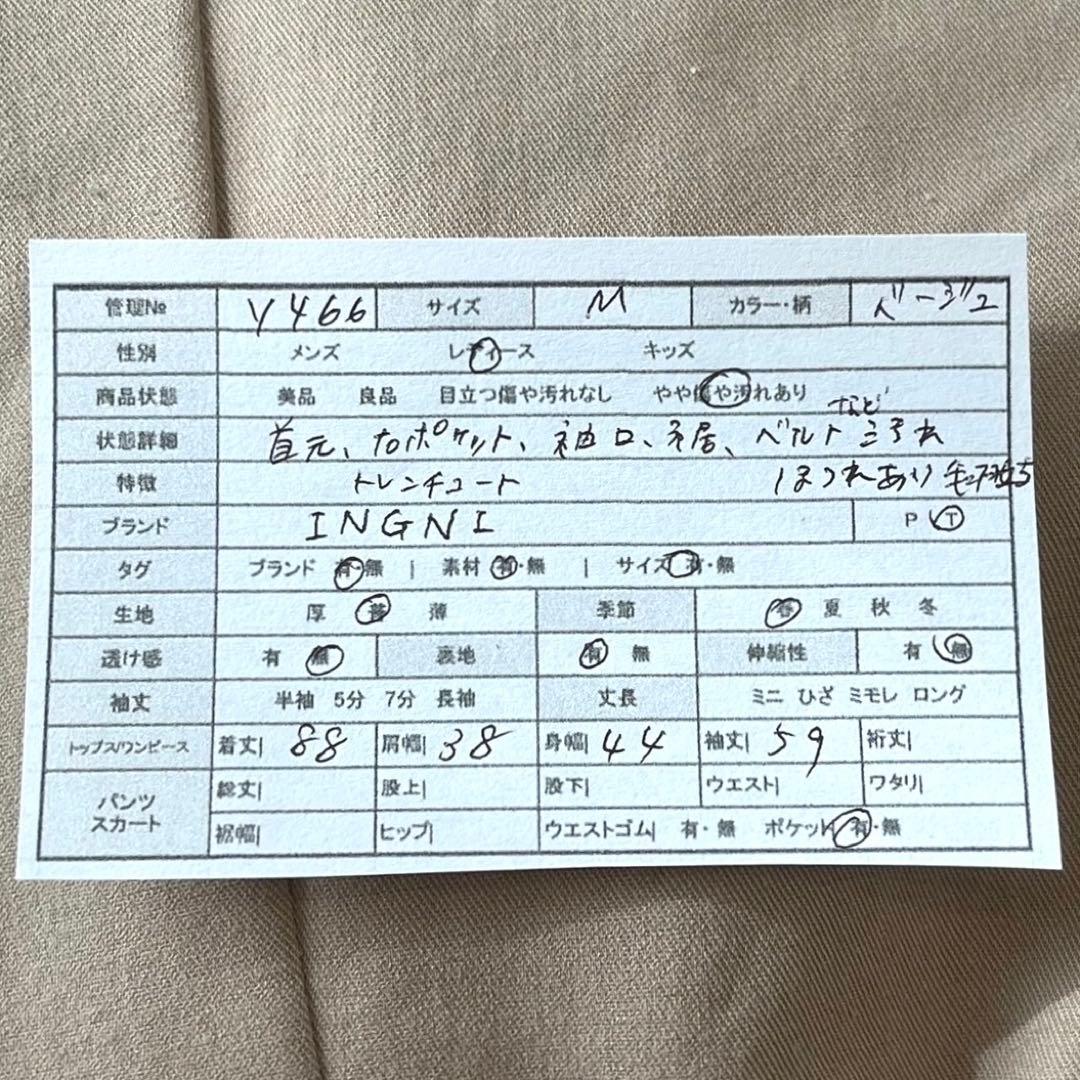 管理№ V466 サイズ M カラー・柄 ベージュ
性別 メンズ レディース キッズ
商品状態 美品 良品 目立つ傷や汚れなし やや傷や汚れあり
など
状態詳細 首元、ポケット、袖口、ベルト 汚れ
特徴 トレンチコート ほつれあり
ブランド INGNI P T
タグ ブランド 有・無 | 素材 有・無 | サイズ 有・無
生地 厚 普 薄 季節 春 夏 秋 冬
透け感 有 無 裏地 有 無 伸縮性 有 無
袖丈 半袖 5分 7分 長袖 丈長 ミニ ひざ ミモレ ロング
トップス/ワンピース 着丈| 88 肩幅| 38 身幅| 44 袖丈| 59 裄丈|
パンツ スカート 総丈| 股上| 股下| ウエスト| ワタリ|
裾幅| ヒップ| ウエストゴム| 有・無 ポケット| 有・無